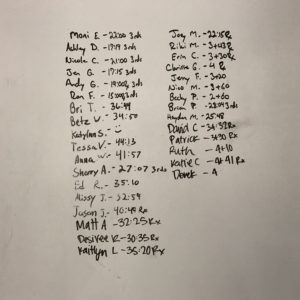 Moni E. - 22:00 3rds
Ashley D. - 17:19 3rds
Nicole C. - 21:00 3rds
Jen G. - 17:15 3rds
Andy G. - 19:00 3rds
Ron F. - 15:00 3rds
Bri T. - 36:44
Betz W. - 34:50
Katylnn S. -
Tessa V. - 44:13
Anna W. - 41:57
Sherry A. - 27:07 3rds
Ed R. - 35:10
Missy J. - 32:59
Jason J. - 40:49 Rx
Matt A - 32:25 Rx
Desiree R - 30:35 Rx
Kaitlyn L - 35:20 Rx
Joey M. - 22:15 Rx
Riki M. - 3+43 R
Erin C. - 3+30 Rx
Chrissie G. - 4 R
Jenny F. - 3+20
Nico M. - 3+60
Becky P. - 2+60
Brian P. - 28:04 3rds
Hayden M. - 25:48
David C - 34:32 Rx
Patrick - 3+30 Rx
Ruth - 4+10
Katie C - 4+41 Rx
Derek - 4